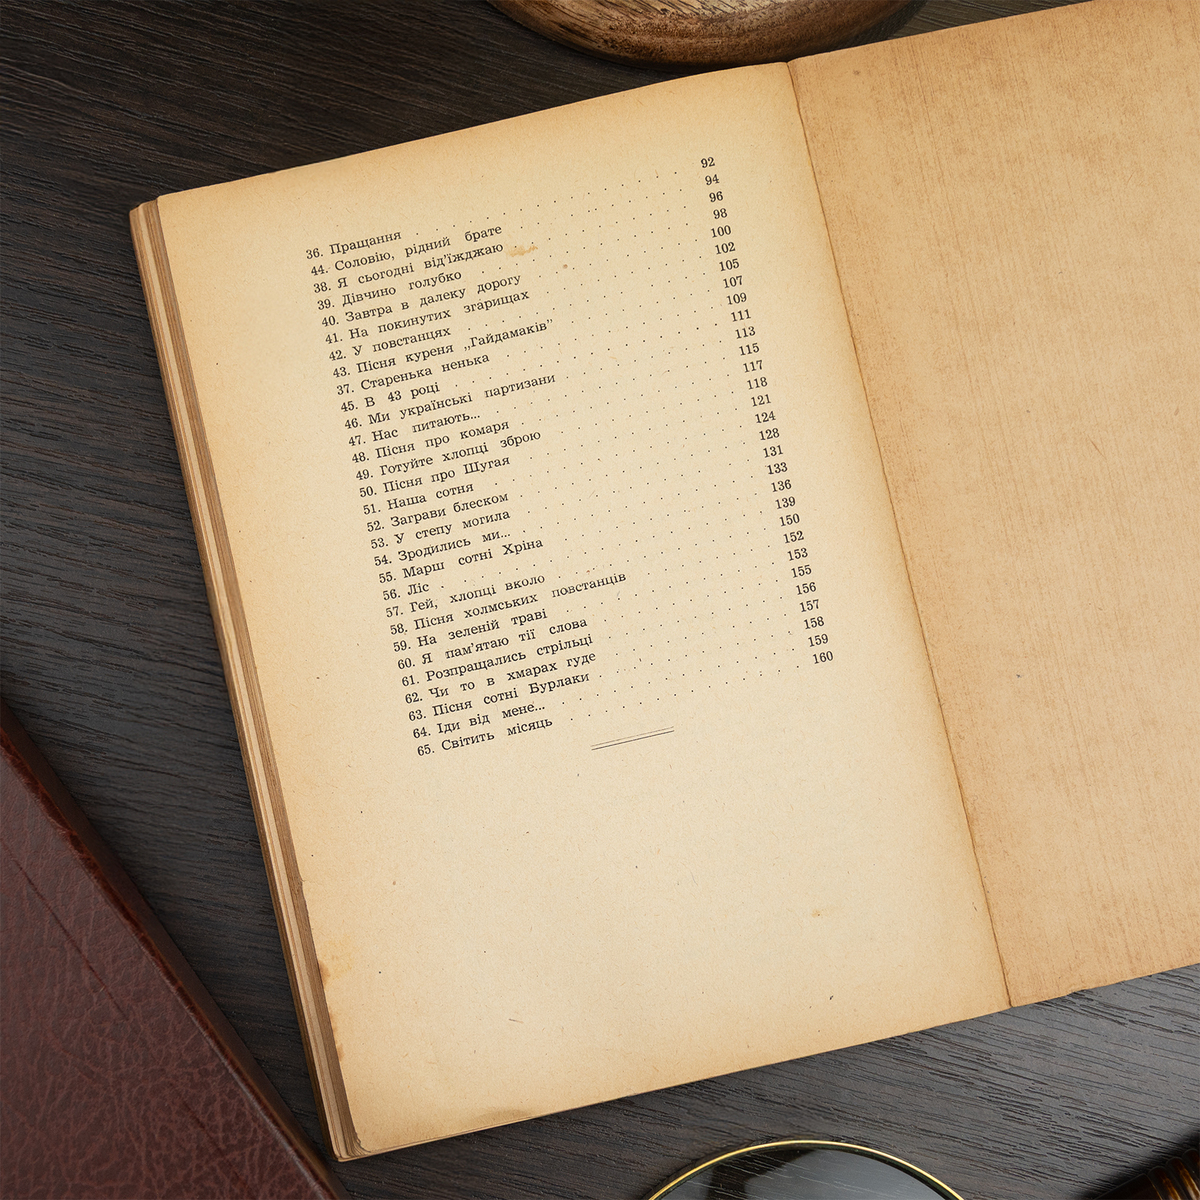 36. Пращання . . . . . . . . . . 92
44. Соловію, рідний брате . . . . . . . . . . 94
38. Я сьогодні від'їжджаю . . . . . . . . . . 96
39. Дівчино голубко . . . . . . . . . . 98
40. Завтра в далеку дорогу . . . . . . . . . . 100
41. На покинутих згарищах . . . . . . . . . . 102
42. У повстанцях . . . . . . . . . . 105
43. Пісня куреня „Гайдамаків” . . . . . . . . . . 107
37. Старенька ненька . . . . . . . . . . 109
45. В 43 році . . . . . . . . . . 111
46. Ми українські партизани . . . . . . . . . . 113
47. Нас питають... . . . . . . . . . . 115
48. Пісня про комаря . . . . . . . . . . 117
49. Готуйте хлопці зброю . . . . . . . . . . 118
50. Пісня про Шугая . . . . . . . . . . 121
51. Наша сотня . . . . . . . . . . 124
52. Заграви блеском . . . . . . . . . . 128
53. У степу могила . . . . . . . . . . 131
54. Зродились ми... . . . . . . . . . . 133
55. Марш сотні Хріна . . . . . . . . . . 136
56. Ліс . . . . . . . . . . 139
57. Гей, хлопці вколо . . . . . . . . . . 150
58. Пісня холмських повстанців . . . . . . . . . . 152
59. На зеленій траві . . . . . . . . . . 153
60. Я пам'ятаю тії слова . . . . . . . . . . 155
61. Розпращались стрільці . . . . . . . . . . 156
62. Чи то в хмарах гуде . . . . . . . . . . 157
63. Пісня сотні Бурлаки . . . . . . . . . . 158
64. Іди від мене... . . . . . . . . . . 159
65. Світить місяць . . . . . . . . . . 160